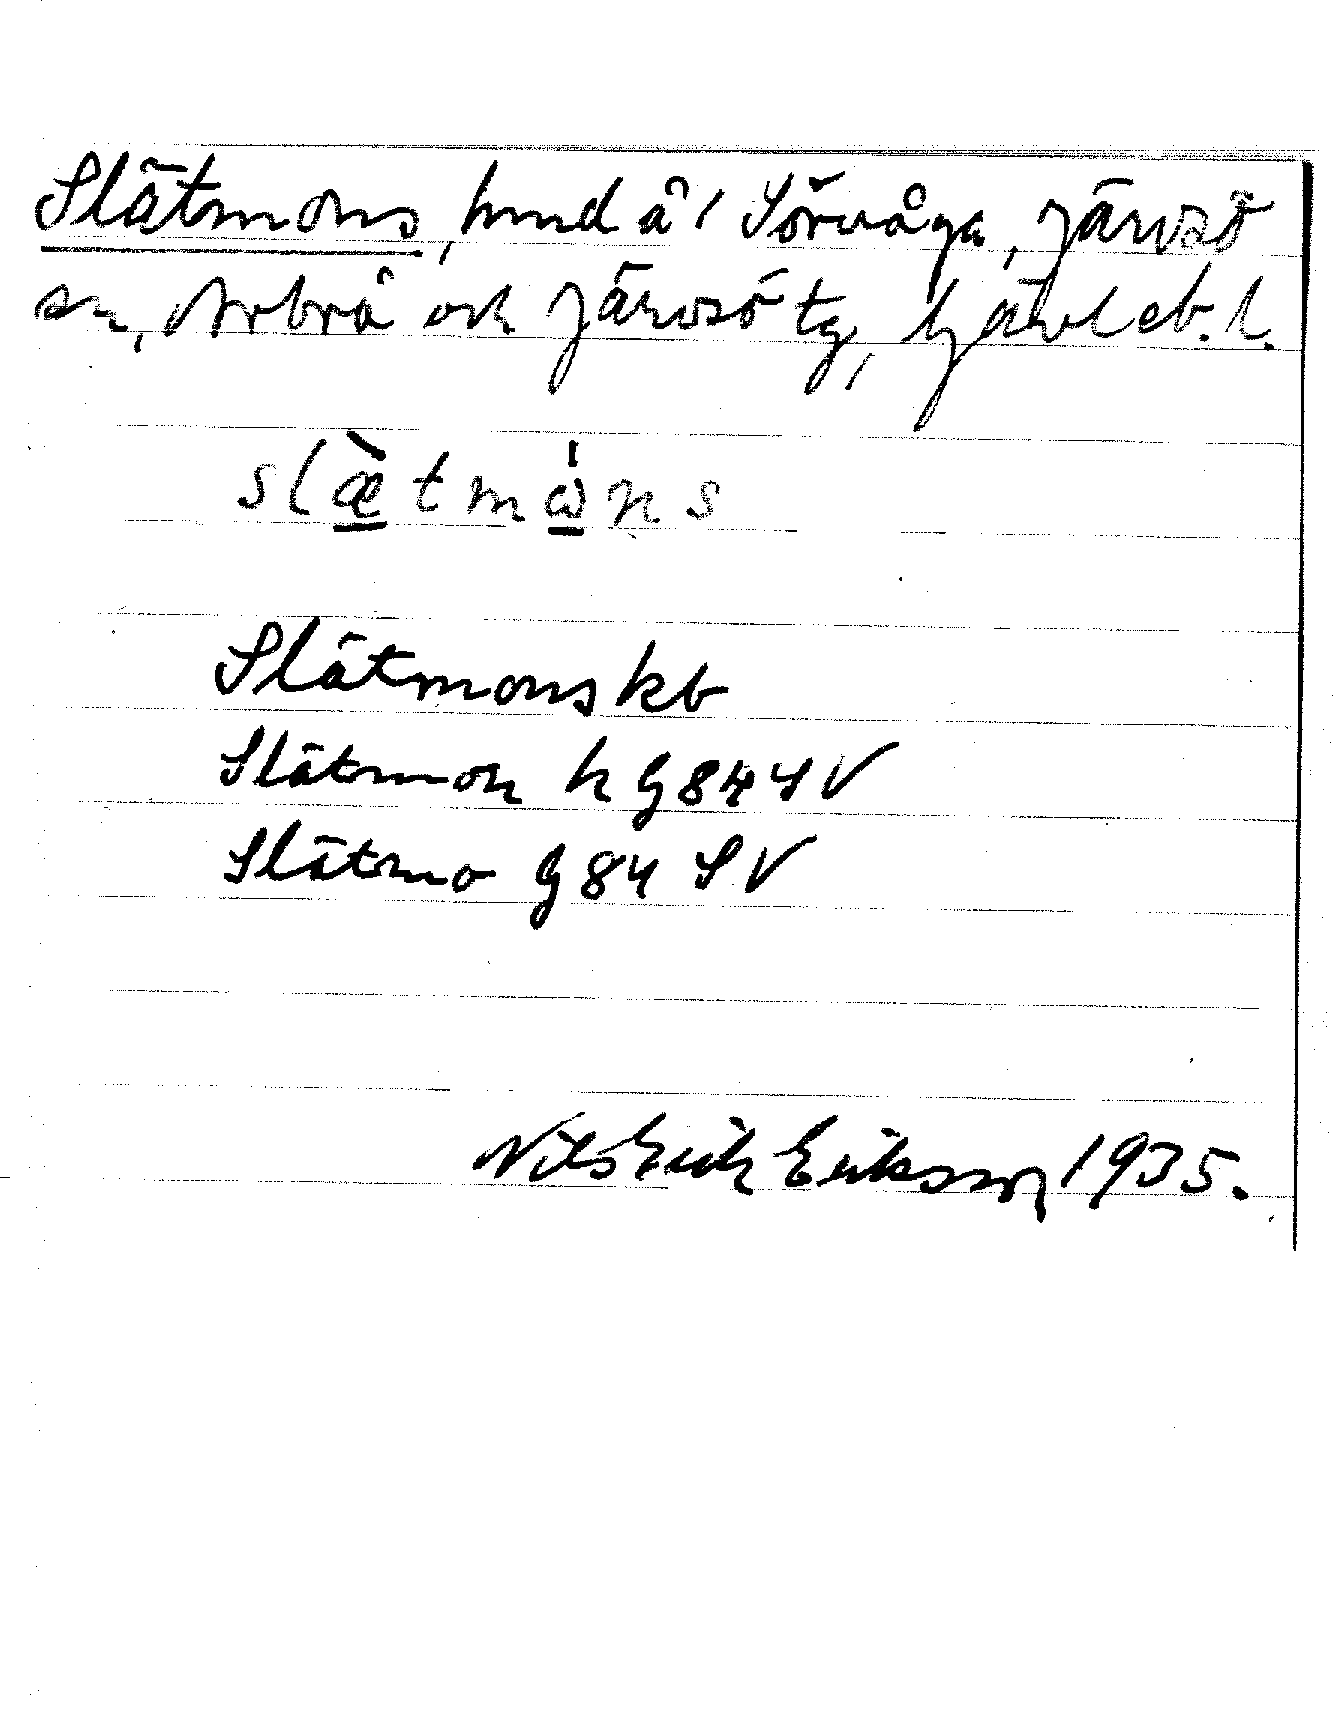 Slätmons, hmd å 1 Sörvåga, Järvsö
sn, Arbrå och Järvsö tg, Gävleb. l.
slæ̀tmωns
Slätmons kb
Slätmon h G 84 SV
Slätmo G 84 SV
Nils Erik Eriksson 1935.